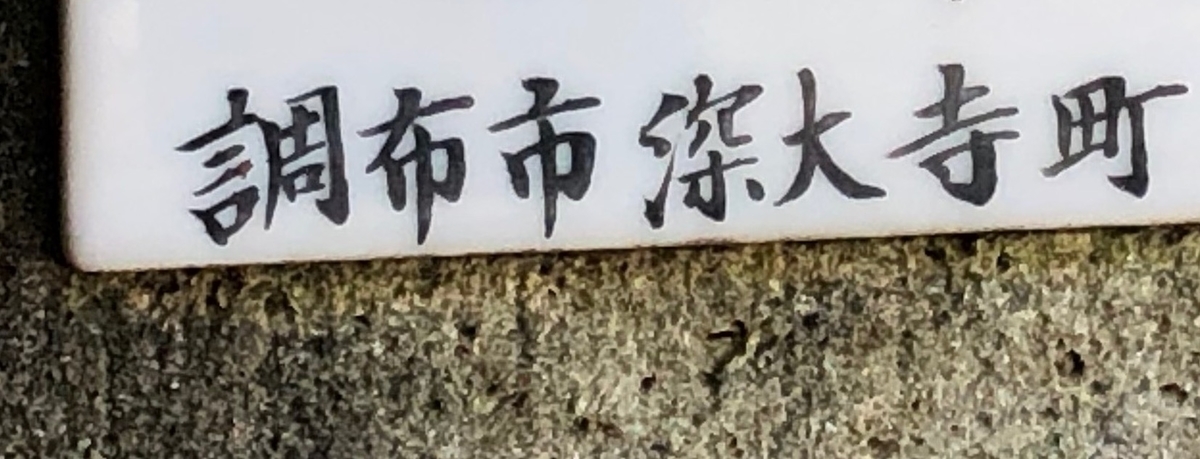 調布市深大寺町